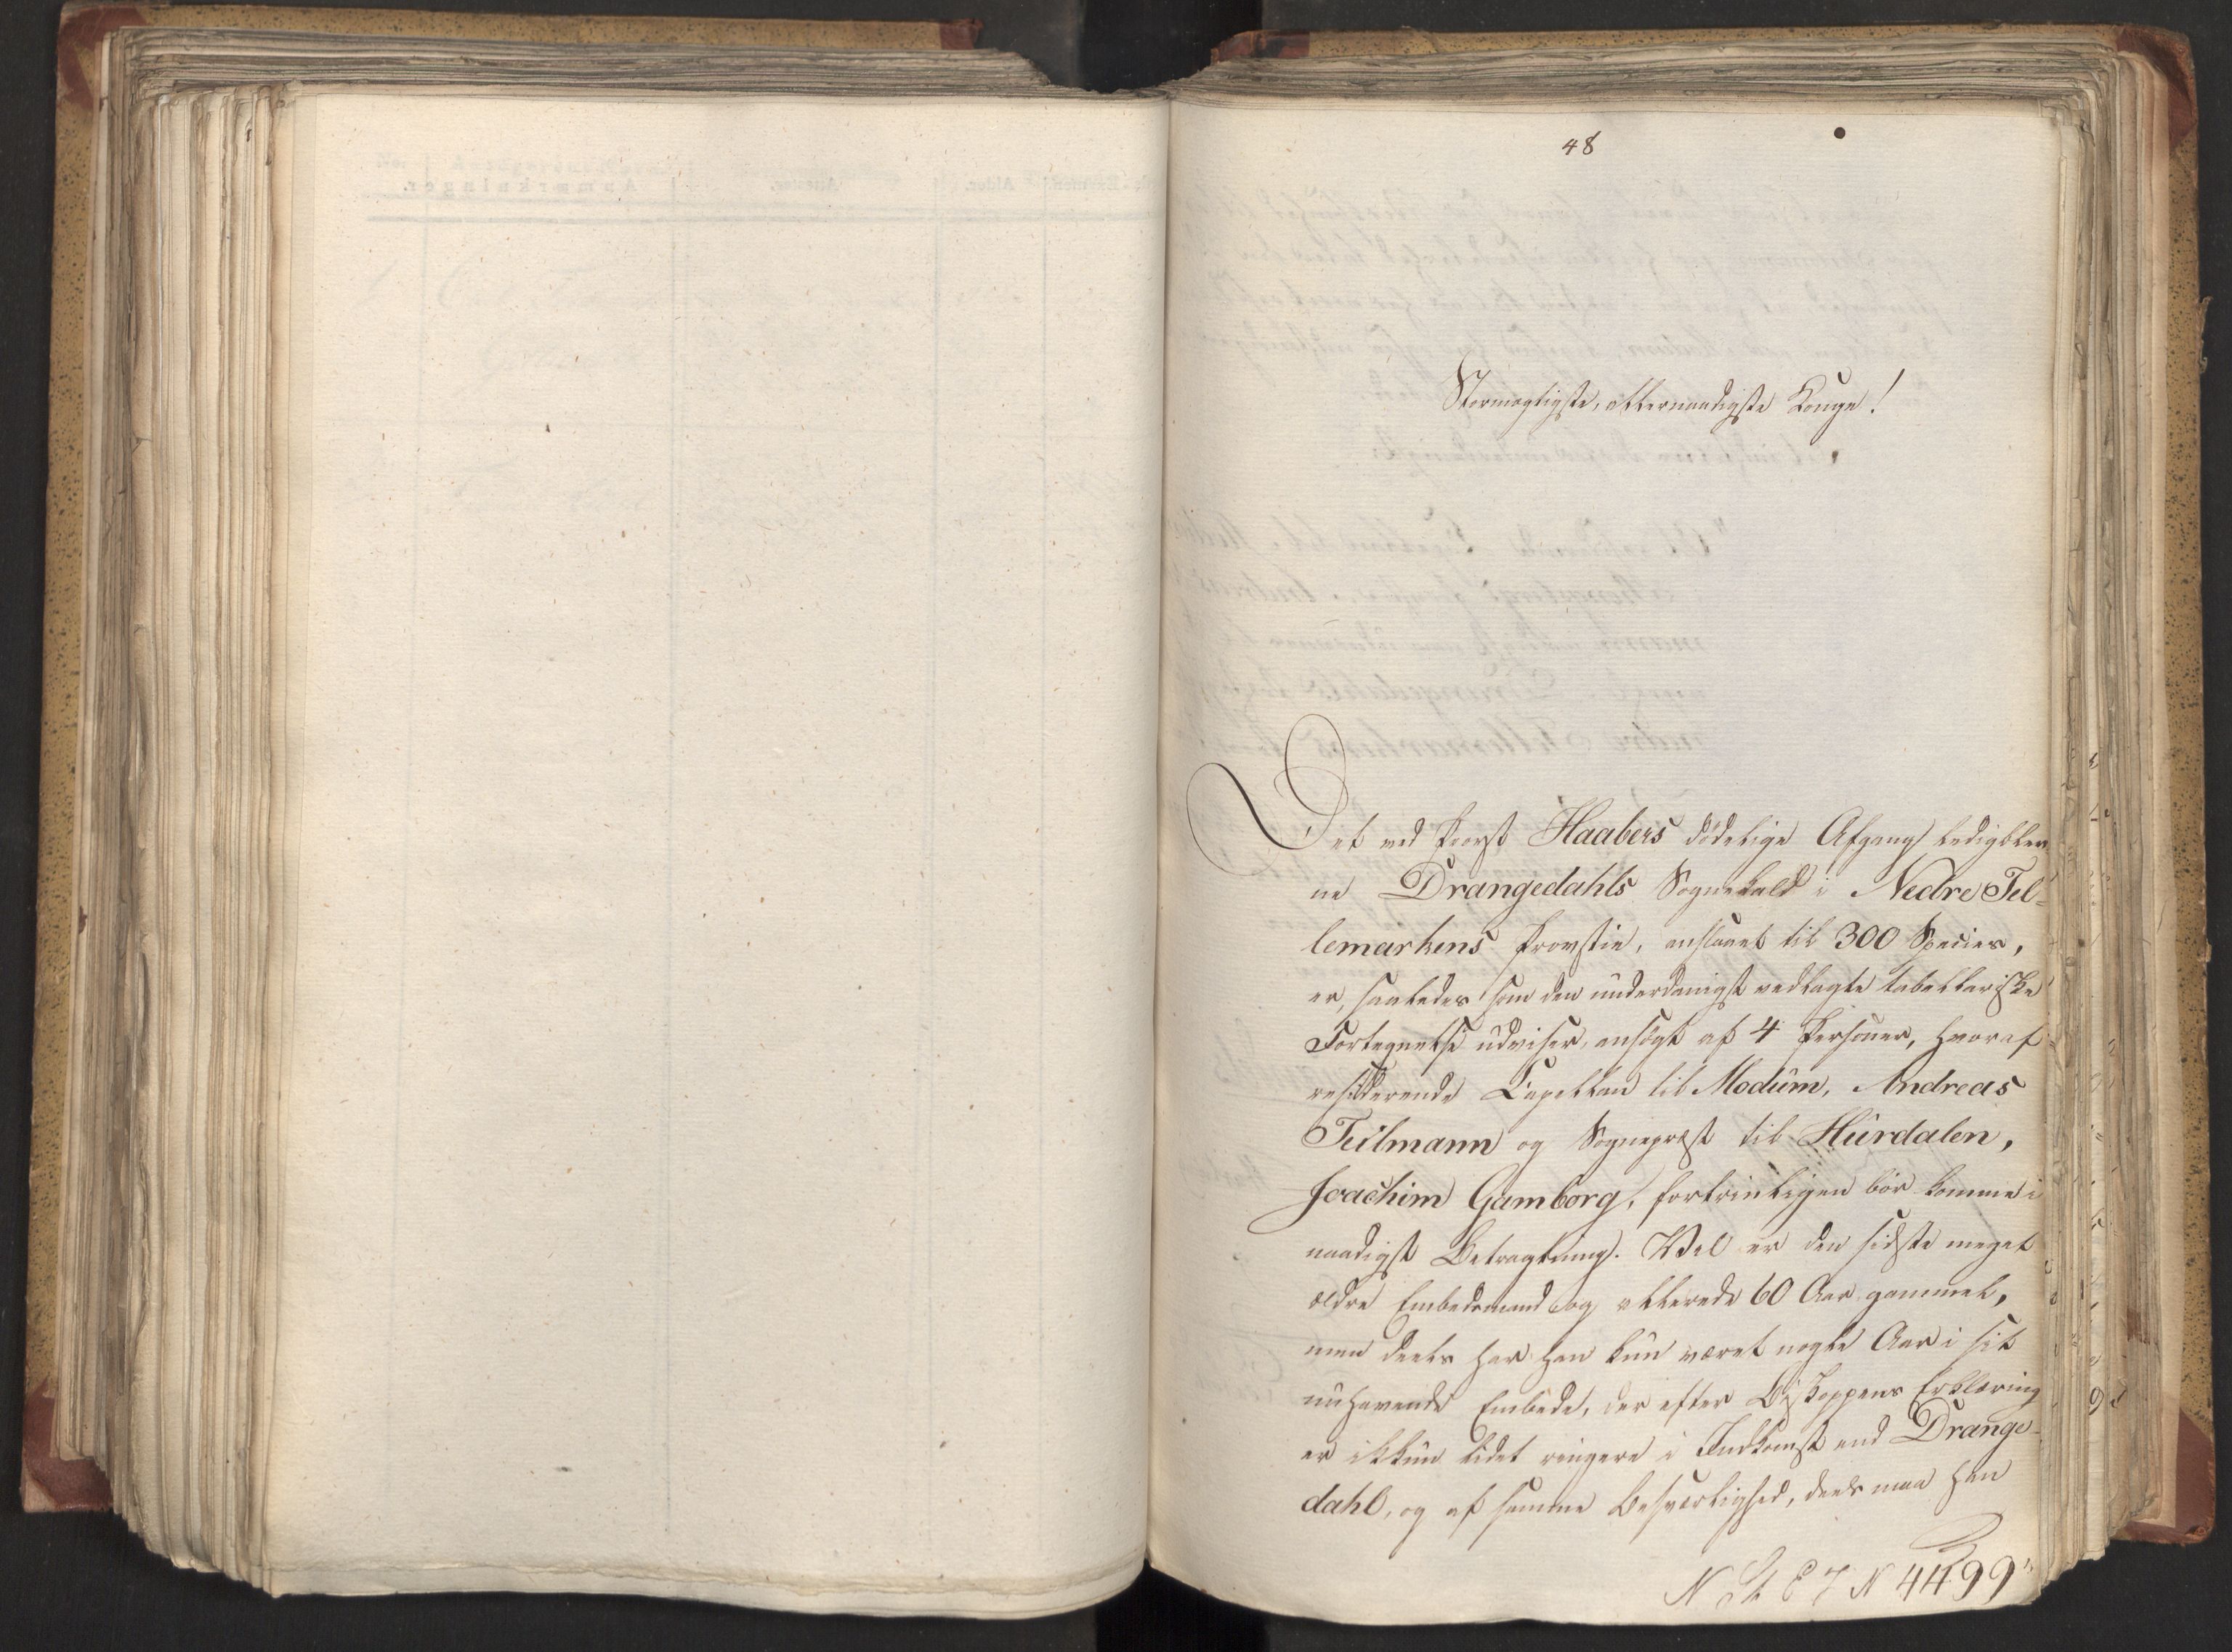 48
Stormægtigste, allernaadigste Konge!
Det ved Provst Haabers dödelige Afgang ledigblev
ne Drangedahls Sognekald i Nedre Tel-
lemarkens Provstie, anslaaet til 300 Species,
er, saaledes som den underdanigst vedlagte tabellariske
Fortegnelse udviser, ansögt af 4 Personer, hvoraf
residerende Capellan til Modum, Andreas
Teilmann og Sognepræst til Hurdalen,
Joachim Gamborg, fortrinligen bör komme i
naadigst Betragtning. Vel er den sidste meget
ældre Embedsmand og allerede 60 Aar gammel,
men deels har han kun været nogle Aar i sit
nuhavende Embede, der efter Biskoppens Erklæring
er ikkun lidet ringere i Indkomst end Drange-
dahl, og af samme Besværlighed, deels maa han
N 4499